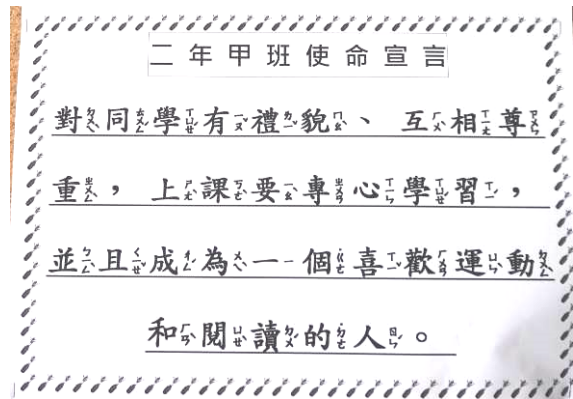 二年甲班使命宣言
對同學有禮貌、互相尊
重，上課要專心學習，
並且成為一個喜歡運動
和閱讀的人。